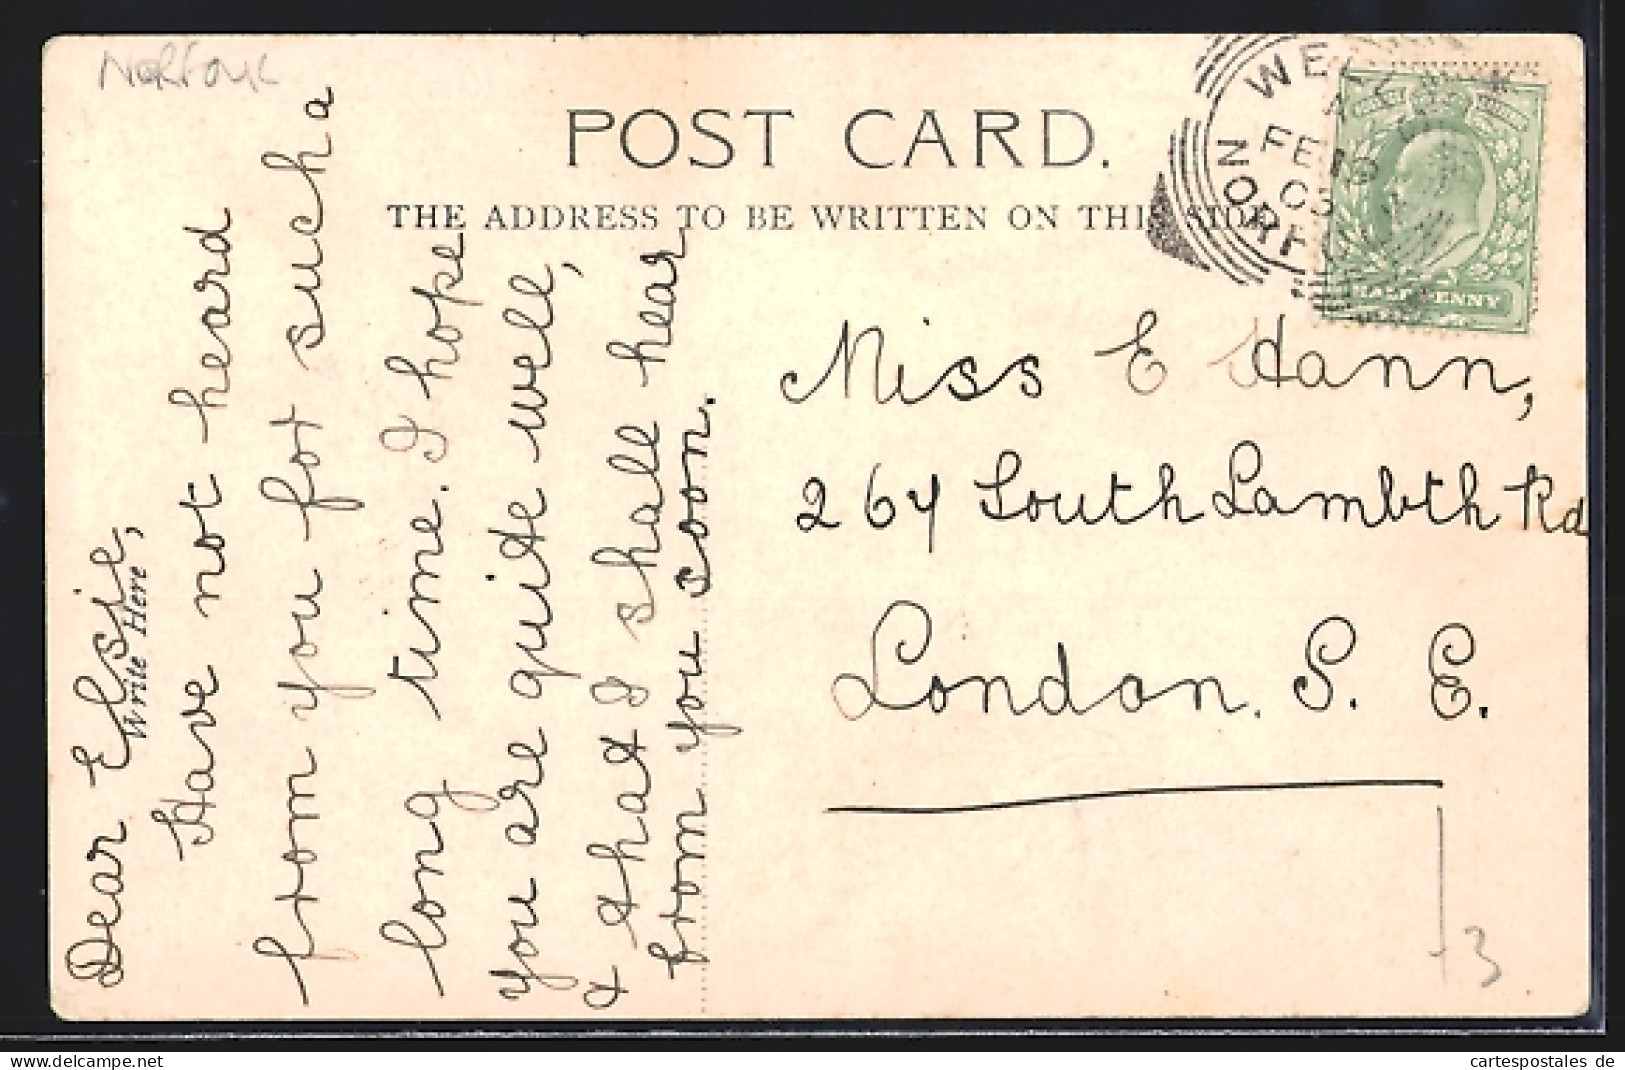 Norfolk
POST CARD.
THE ADDRESS TO BE WRITTEN ON THIS SIDE
Write Here
Dear Elsie,
Have not heard
from you for such a
long time. I hope
you are quite well,
& that I shall hear
from you soon.
WE
FE 19
NORF
HALFPENNY
Miss E Hann,
264 South Lambth Rd
London. S. E.
3
www.delcampe.net
cartespostales de